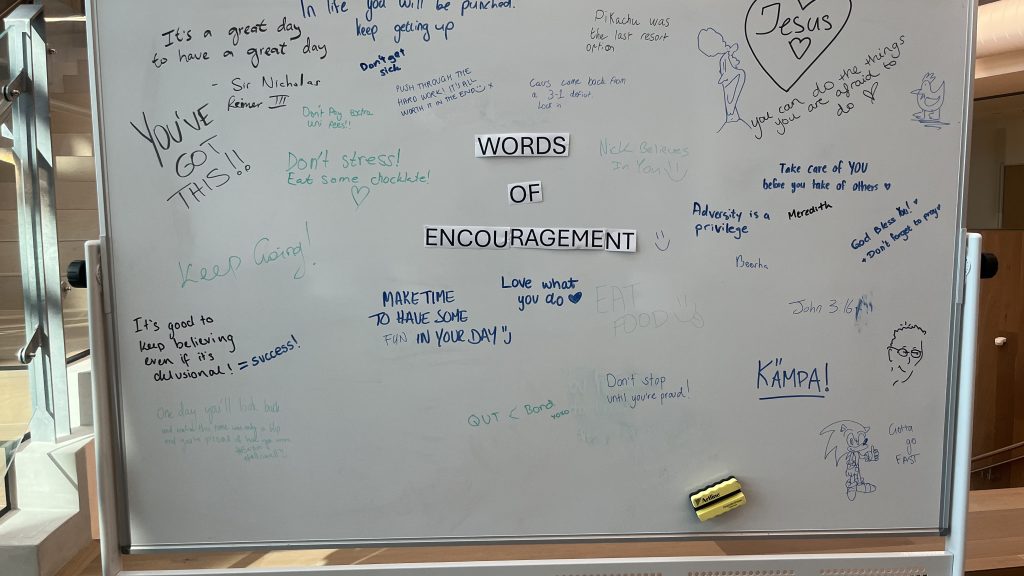 In life you will be punched.
keep getting up
It's a great day
to have a great day
- Sir Nicholas
Reimer III
Don't get
sick
Pikachu was
the last resort
option
Jesus
you can do the things
you are afraid to
do
PUSH THROUGH THE
HARD WORK! IT'S ALL
WORTH IT IN THE END
x
Cavs came back from
a 3-1 deficit.
Lock in
Don't Pay Extra
Uni Fees!!
YOU'VE
GOT
THIS!!
Don't stress!
Eat some chocklate!
WORDS
OF
ENCOURAGEMENT
Nick Believes
In You
Take care of YOU
before you take of others
Adversity is a
privilege
Meredith
God Bless You!
Don't forget to pray
Keep Going!
Love what
you do
MAKE TIME
TO HAVE SOME
FUN IN YOUR DAY
EAT
FOOD
John 3:16
It's good to
keep believing
even if it's
delusional! = success!
KÄMPA!
Don't stop
until you're proud!
QUT < Bond
YOLO
One day you'll look back
and
Gotta
go
FAST
Artline